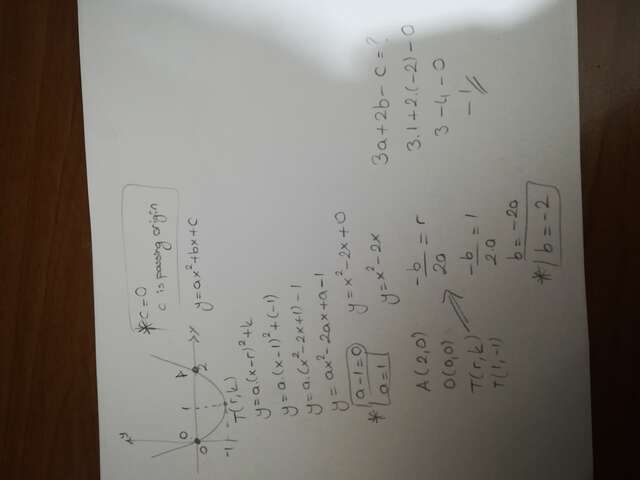 *c=0
c is passing origin
y=ax²+bx+c
y
x
A
0
0
1
2
-1
T(r,k)
y=a.(x-r)²+k
y=a.(x-1)²+(-1)
y=a.(x²-2x+1)-1
y=ax²-2ax+a-1
a-1=0
* a=1
y=x²-2x+0
y=x²-2x
A(2,0)
O(0,0)
T(r,k)
T(1,-1)
-b/2a=r
-b/2.a=1
b=-2a
* b=-2
3a+2b-c=?
3.1+2.(-2)-0
3-4-0
-1